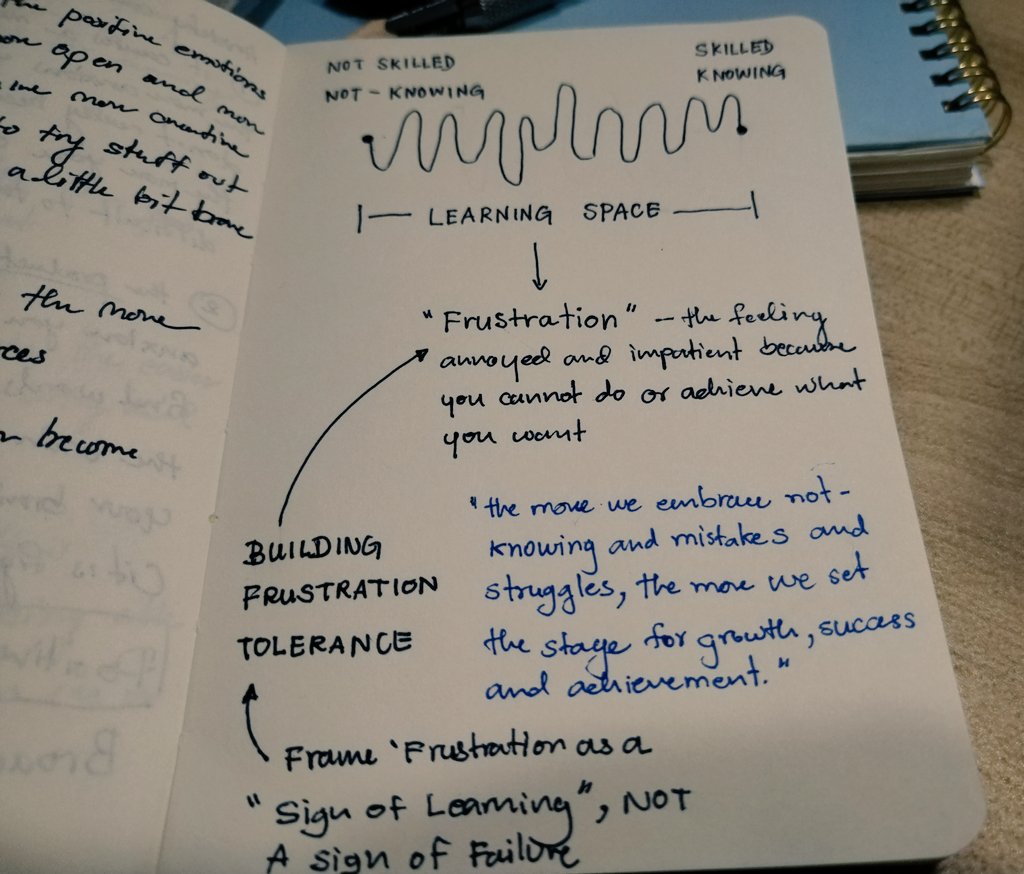 the positive emotions
open and mon
me more creative
to try stuff out
a little bit brave
the more
become
NOT SKILLED
NOT-KNOWING
SKILLED
KNOWING
LEARNING SPACE
"Frustration" – the feeling
annoyed and impatient because
you cannot do or achieve what
you want
BUILDING
FRUSTRATION
TOLERANCE
"the more we embrace not-
knowing and mistakes and
struggles, the more we set
the stage for growth, success
and achievement."
Frame 'Frustration as a
"Sign of Learning", NOT
A sign of Failure